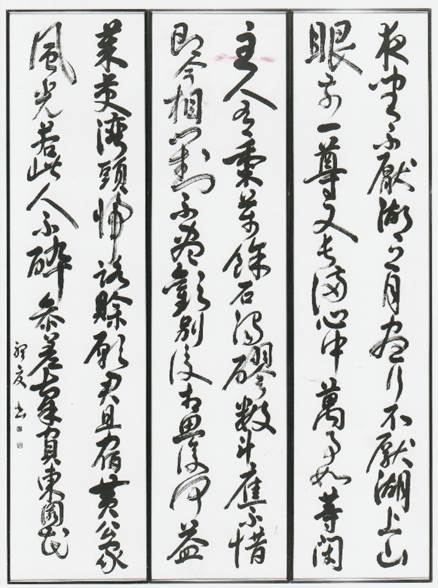 夜坐不厭湖上月晝行不厭湖上山
眼前一尊又長滿心中萬事如等閑
主人有黍萬餘石濁醪數斗應不惜
即今相對不盡歡別後相思復何益
茱萸灣頭歸路賒願君且宿黃公家
風光若此人不醉參差辜負東園花
書